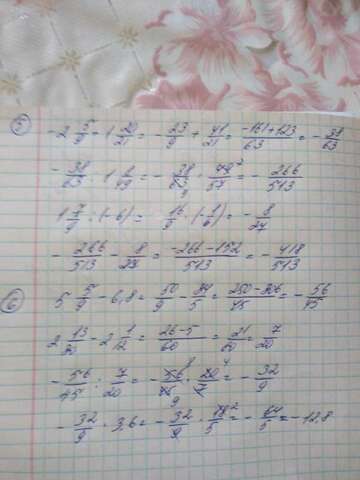 5) -2 5/9 + 1 20/21 = -23/9 + 41/21 = (-161+123)/63 = -38/63
-38/63 : 1 8/49 = -38/63 · 49/57 = -266/513
1 7/9 : (-6) = 16/9 · (-1/6) = -8/27
-266/513 - 8/27 = (-266-152)/513 = -418/513
6) 5 5/9 - 6,8 = 50/9 - 34/5 = (250-306)/45 = -56/45
2 13/30 - 2 1/12 = (26-5)/60 = 21/60 = 7/20
-56/45 : 7/20 = -56/45 · 20/7 = -32/9
-32/9 · 3,6 = -32/9 · 18/5 = -64/5 = -12,8